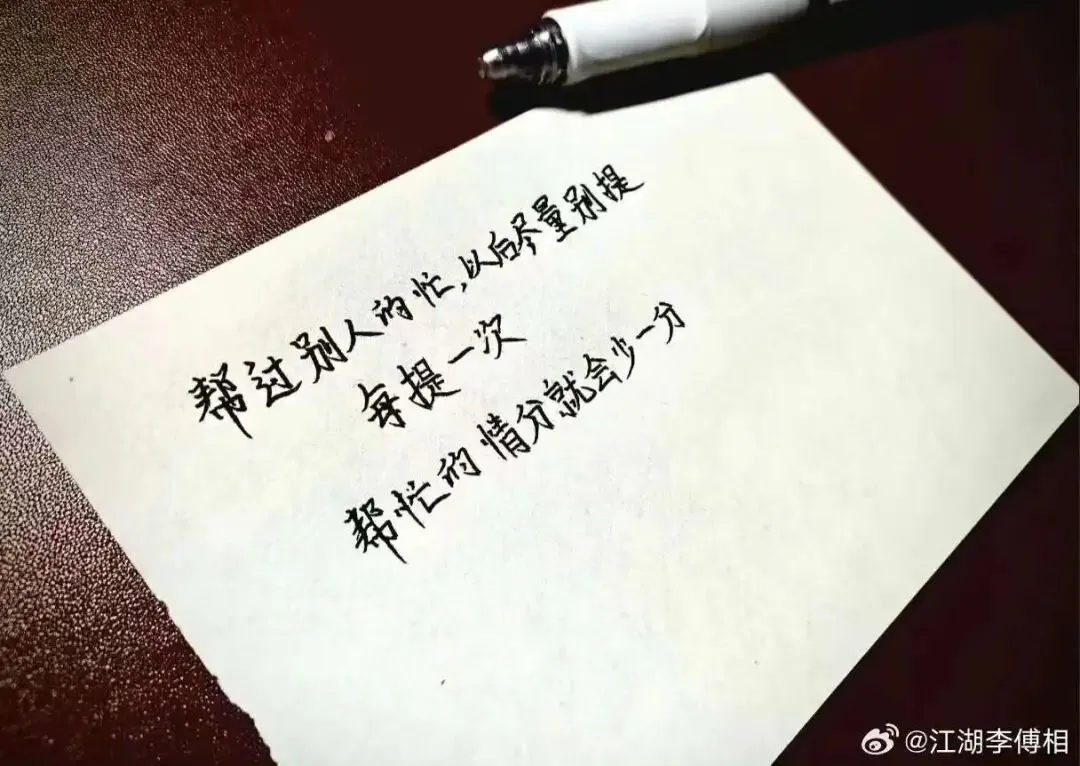 帮过别人的忙,以后尽量别提
每提一次
帮忙的情分就会少一分
@江湖李傅相